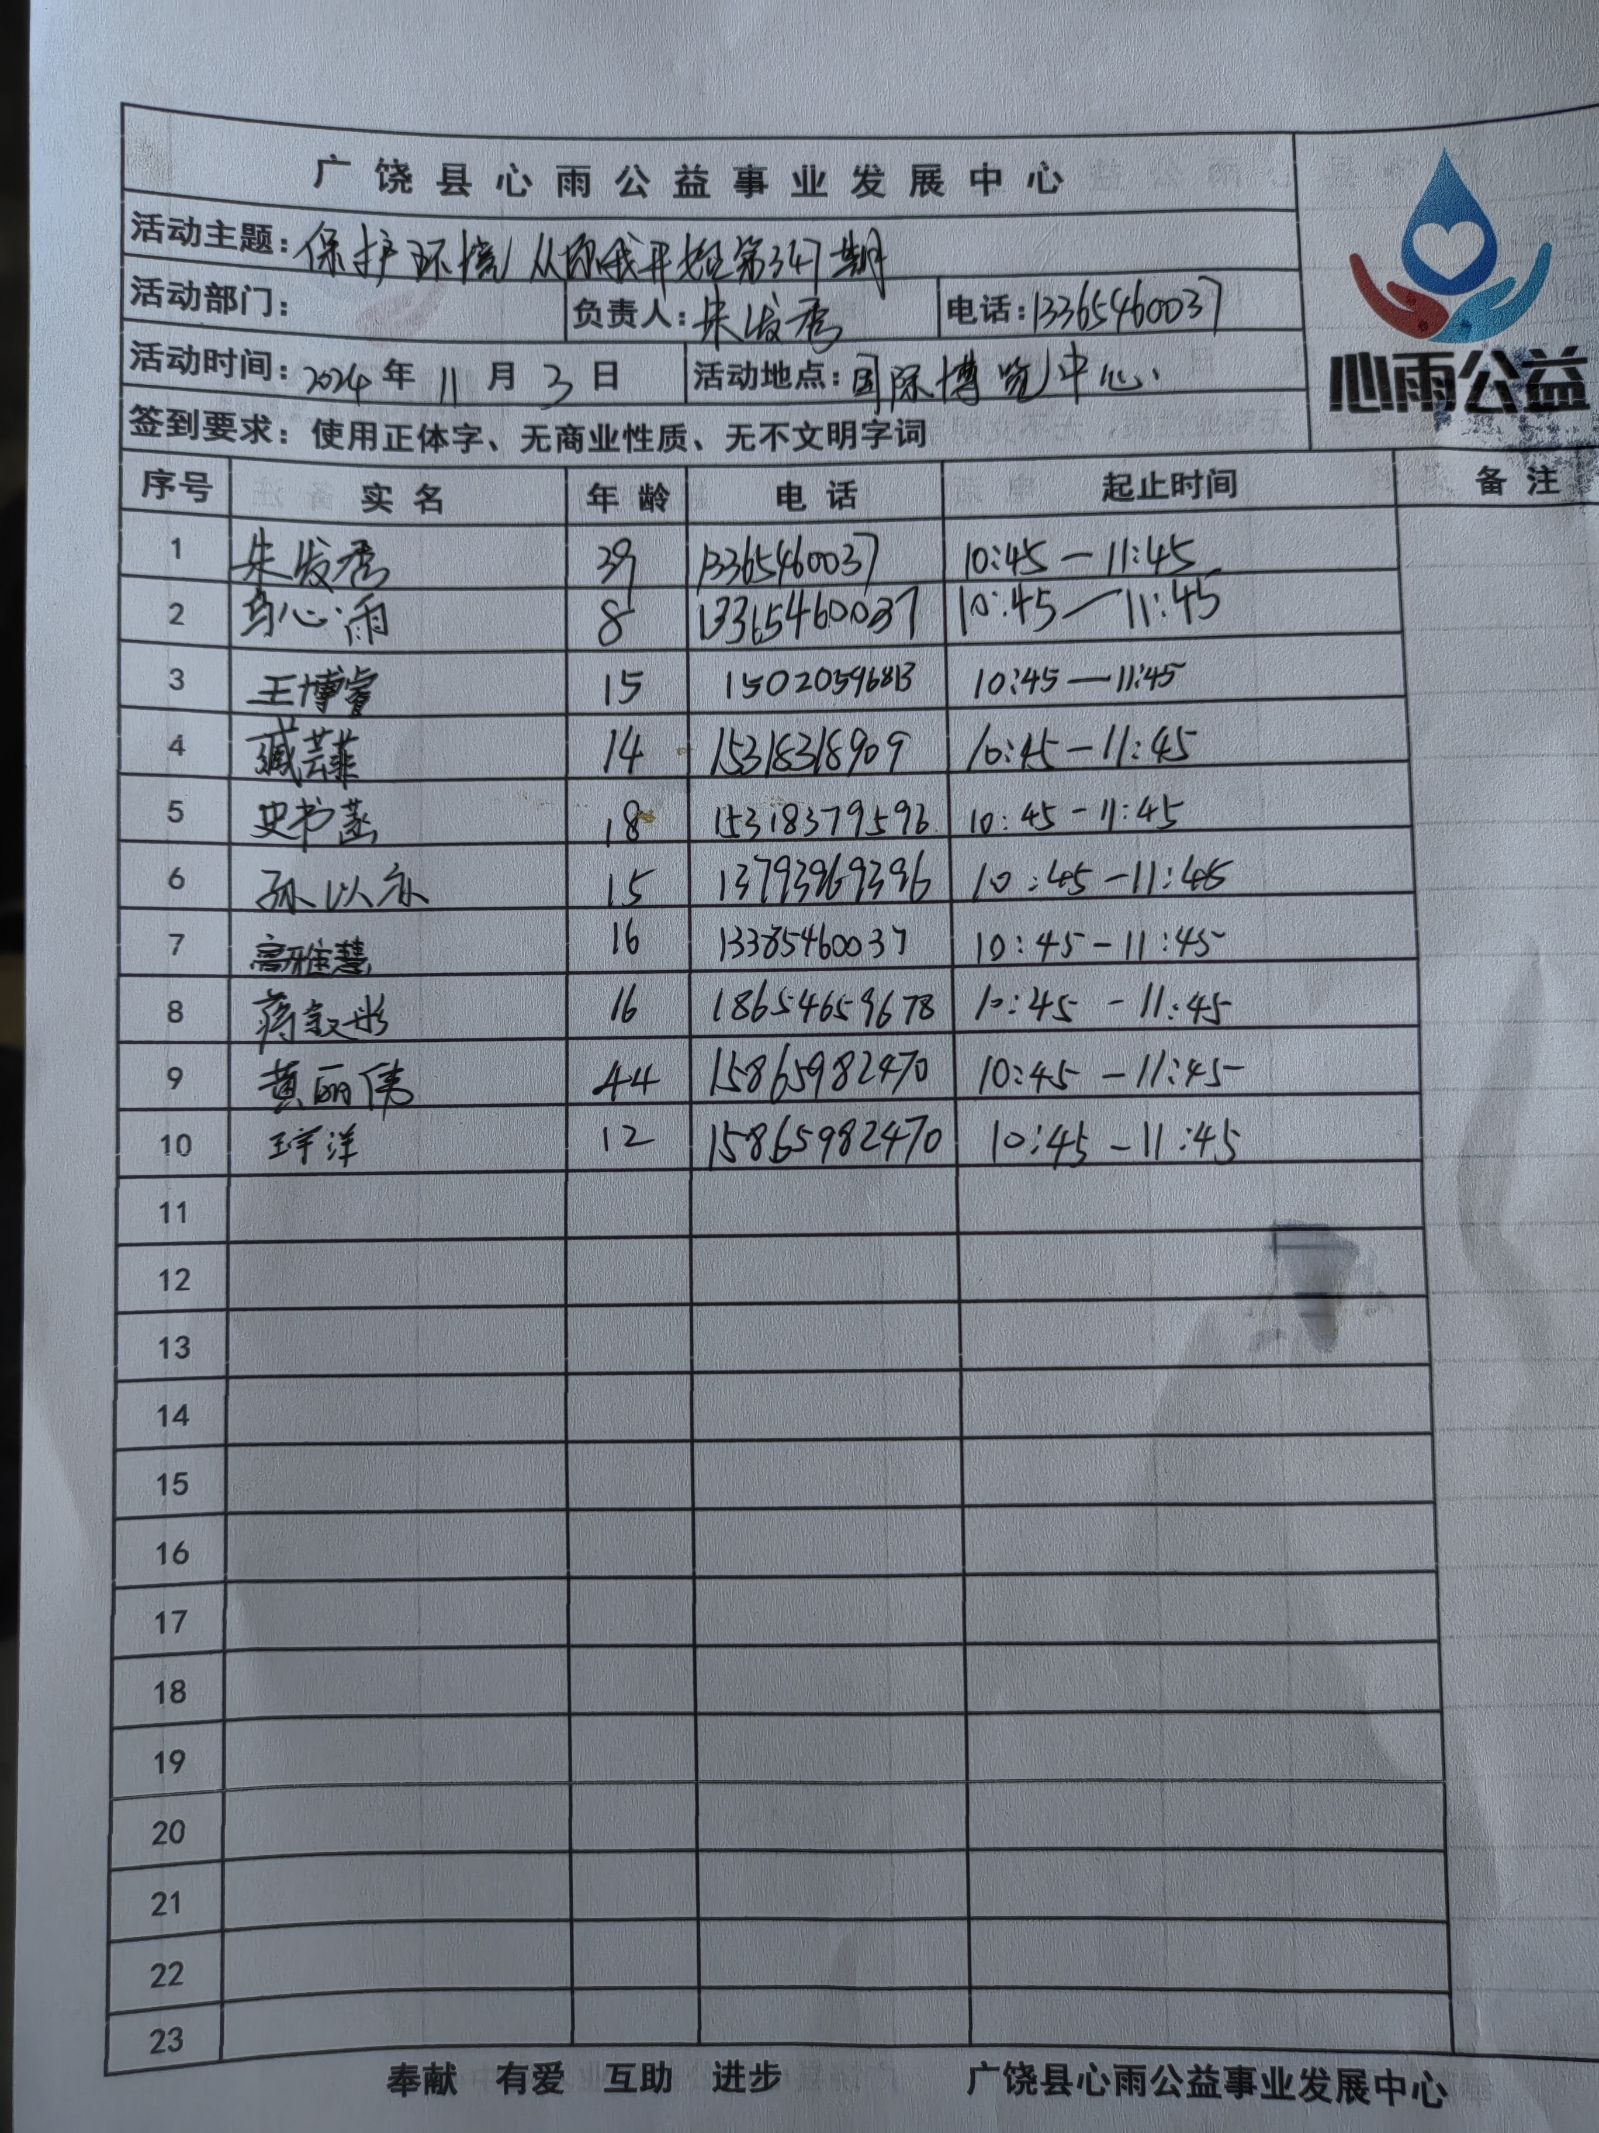 广饶县心雨公益事业发展中心
活动主题：保护环境从你我开始第347期
活动部门： 负责人：朱发秀 电话：13365460037
活动时间：2024年11月3日 活动地点：国际博览中心
心雨公益
签到要求：使用正体字、无商业性质、无不文明字词
序号 实名 年龄 电话 起止时间 备注
1 朱发秀 39 13365460037 10:45—11:45
2 马心雨 8 13365460037 10:45—11:45
3 王博睿 15 15020596813 10:45—11:45
4 臧芸菲 14 15318318909 10:45-11:45
5 史书菡 18 15318379596 10:45-11:45
6 孙以永 15 13793969396 10:45-11:45
7 高雅慧 16 13385460037 10:45-11:45
8 蒋叙彤 16 18654659678 10:45-11:45
9 黄丽伟 44 15865982470 10:45-11:45
10 王宇洋 12 15865982470 10:45-11:45
11
12
13
14
15
16
17
18
19
20
21
22
23
奉献 有爱 互助 进步 广饶县心雨公益事业发展中心